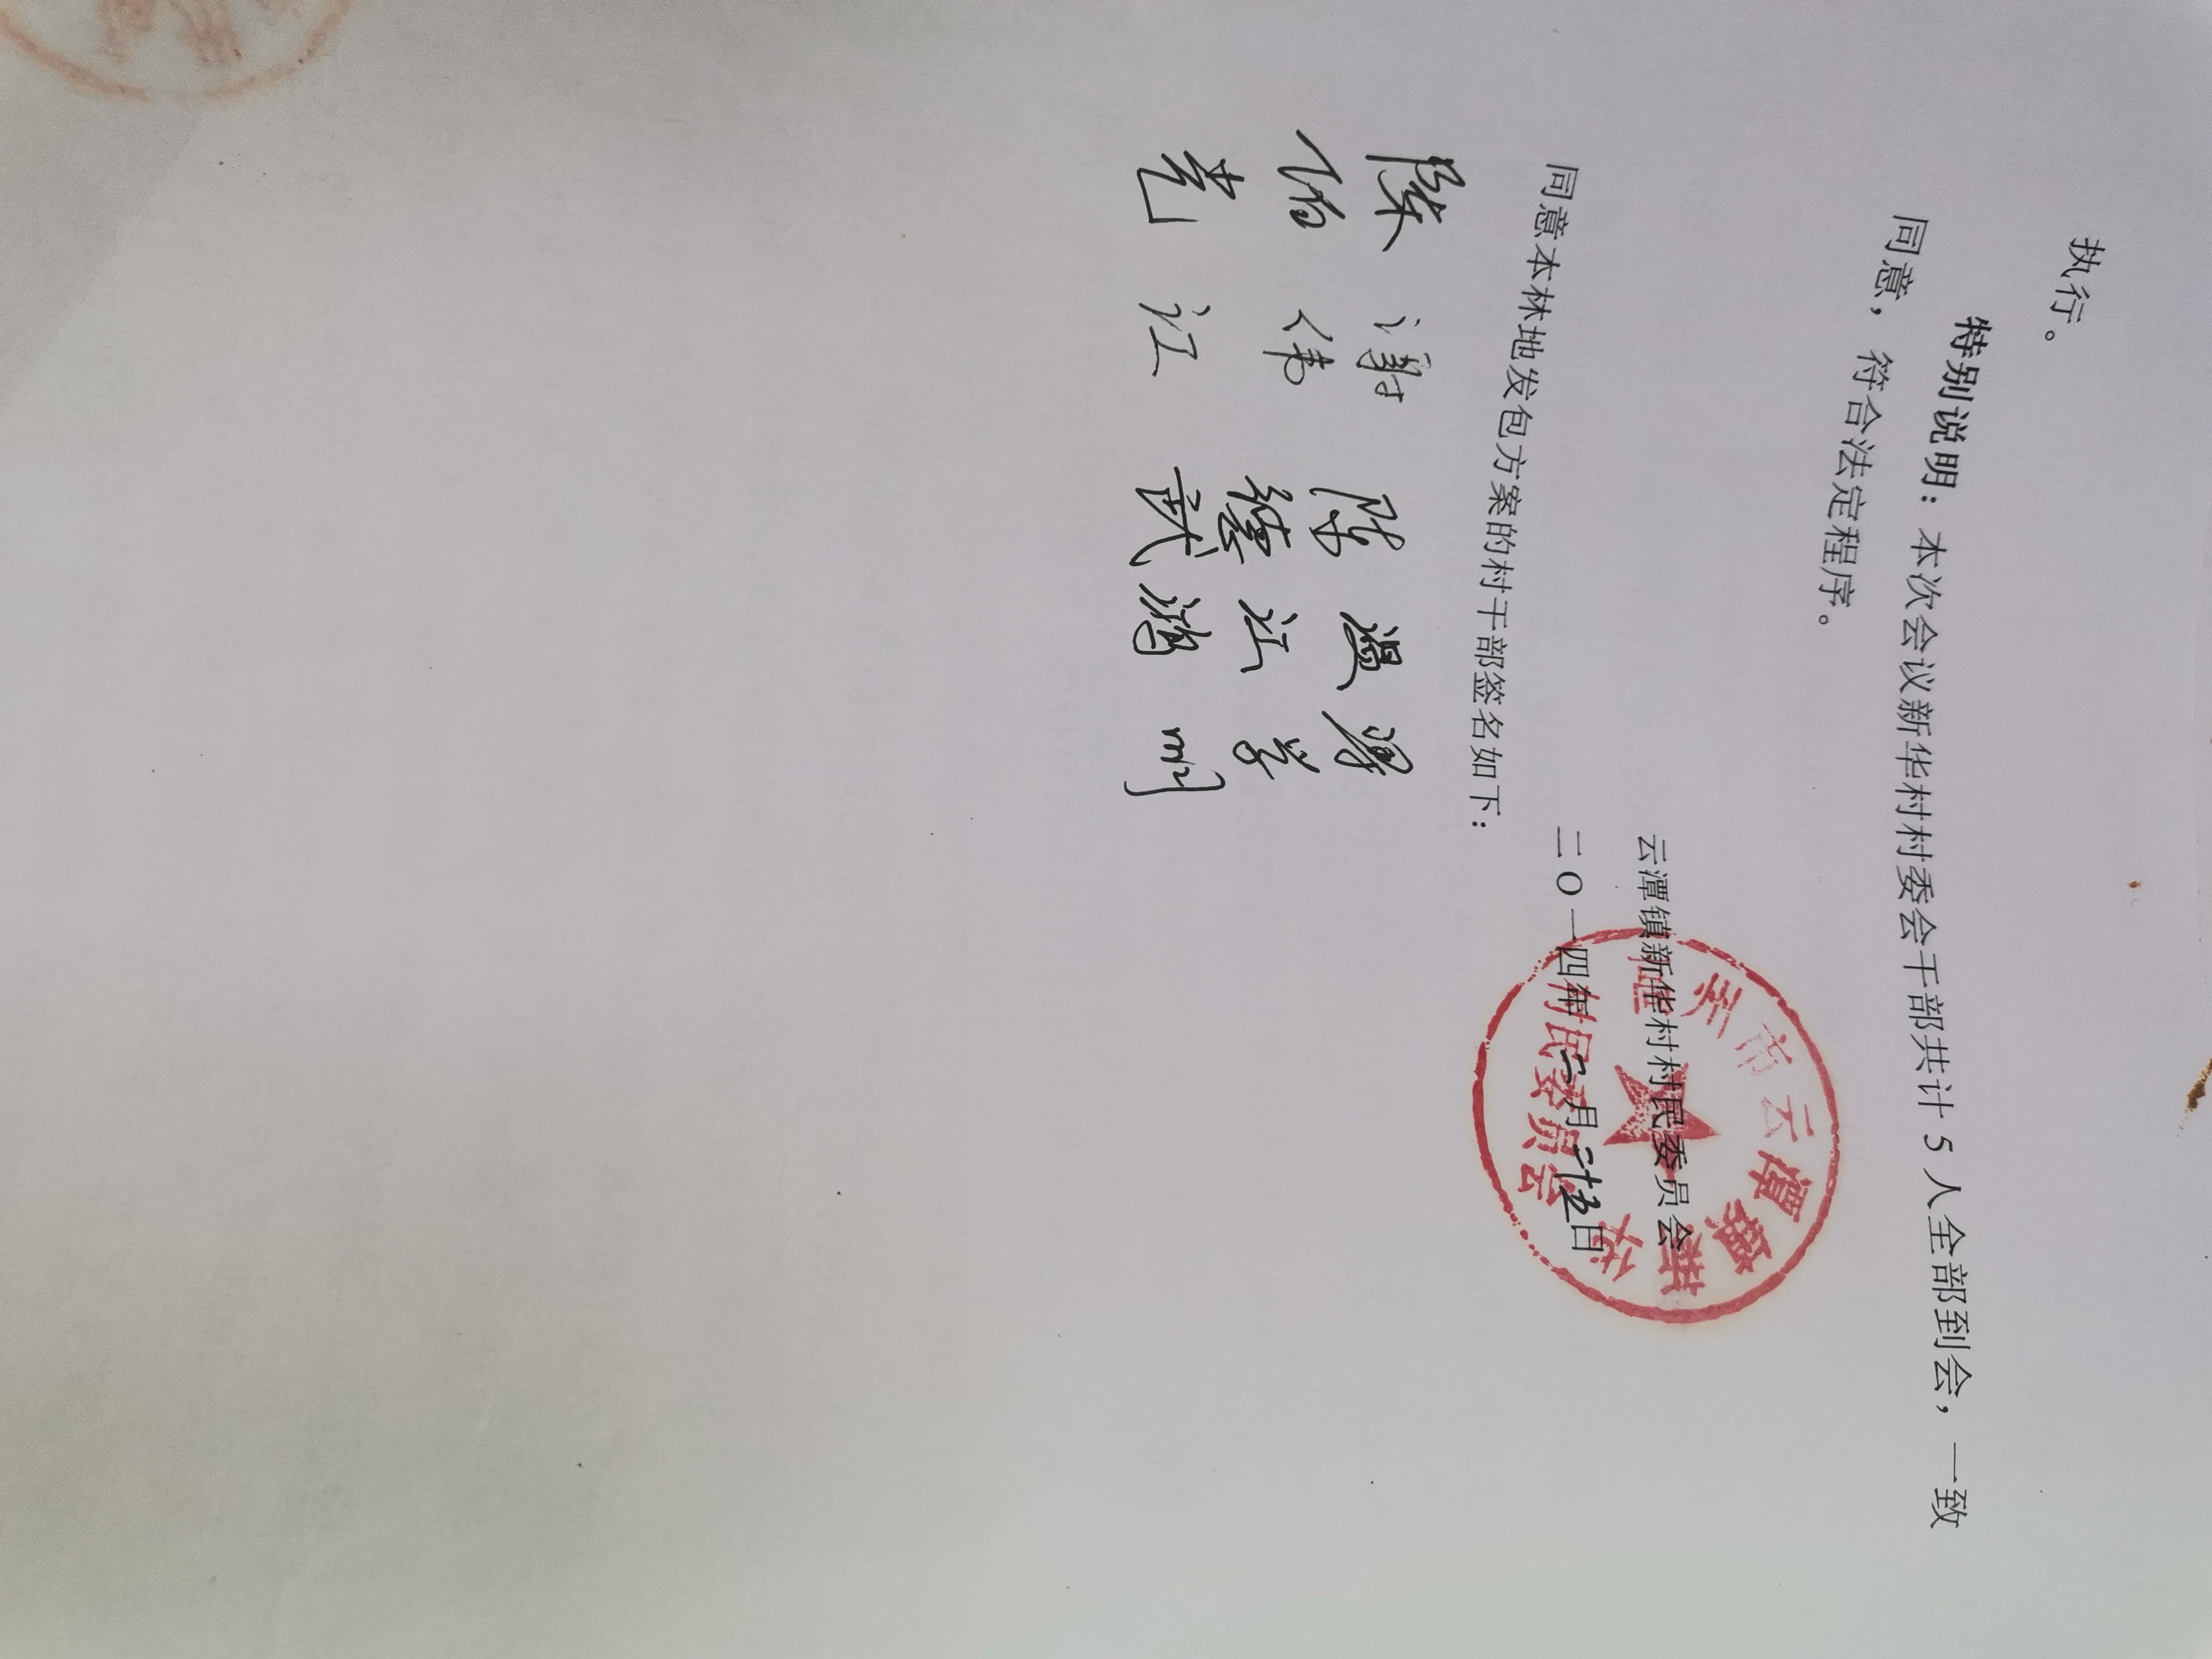 执行。
特别说明：本次会议新华村村委会干部共计5人全部到会，一致
同意，符合法定程序。
云潭镇新华村村民委员会
二O一四年 月 日
州市云潭镇新华
村民委员会
同意本林地发包方案的村干部签名如下：
陈 谢 陈 温 梁
伯 伟 继 江
江 武 鸿 明